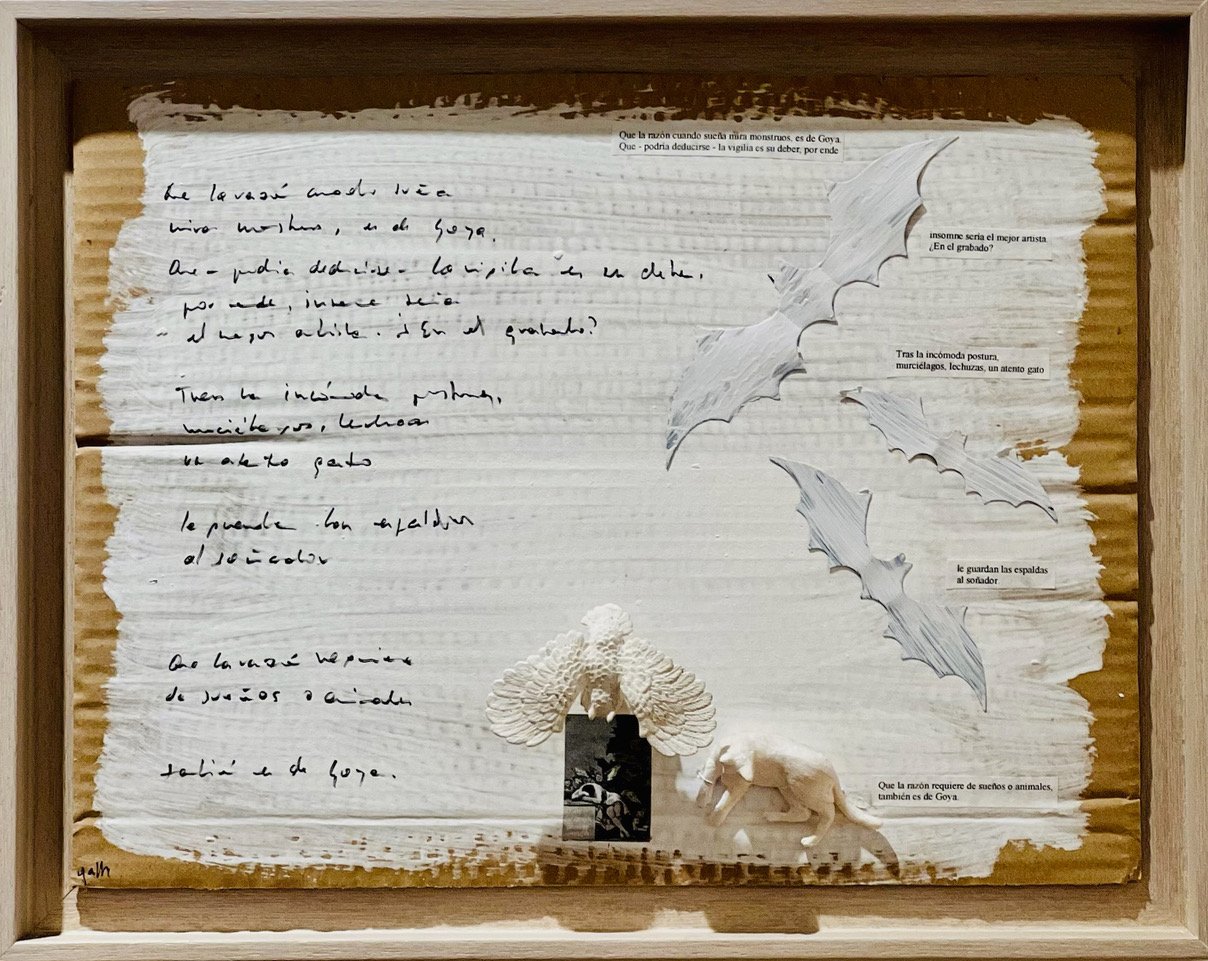 Que la razón cuando sueña
mira monstruos, es de Goya.
Que - podría deducirse - la vigilia es su deber,
por ende, insomne sería
el mejor artista. ¿En el grabado?
Tras la incómoda postura,
murciélagos, lechuzas
un atento gato
le guardan las espaldas
al soñador
Que la razón requiere
de sueños o animales
también es de Goya.
Que la razón cuando sueña mira monstruos, es de Goya.
Que - podría deducirse - la vigilia es su deber, por ende
insomne sería el mejor artista.
¿En el grabado?
Tras la incómoda postura,
murciélagos, lechuzas, un atento gato
le guardan las espaldas
al soñador
Que la razón requiere de sueños o animales,
también es de Goya.